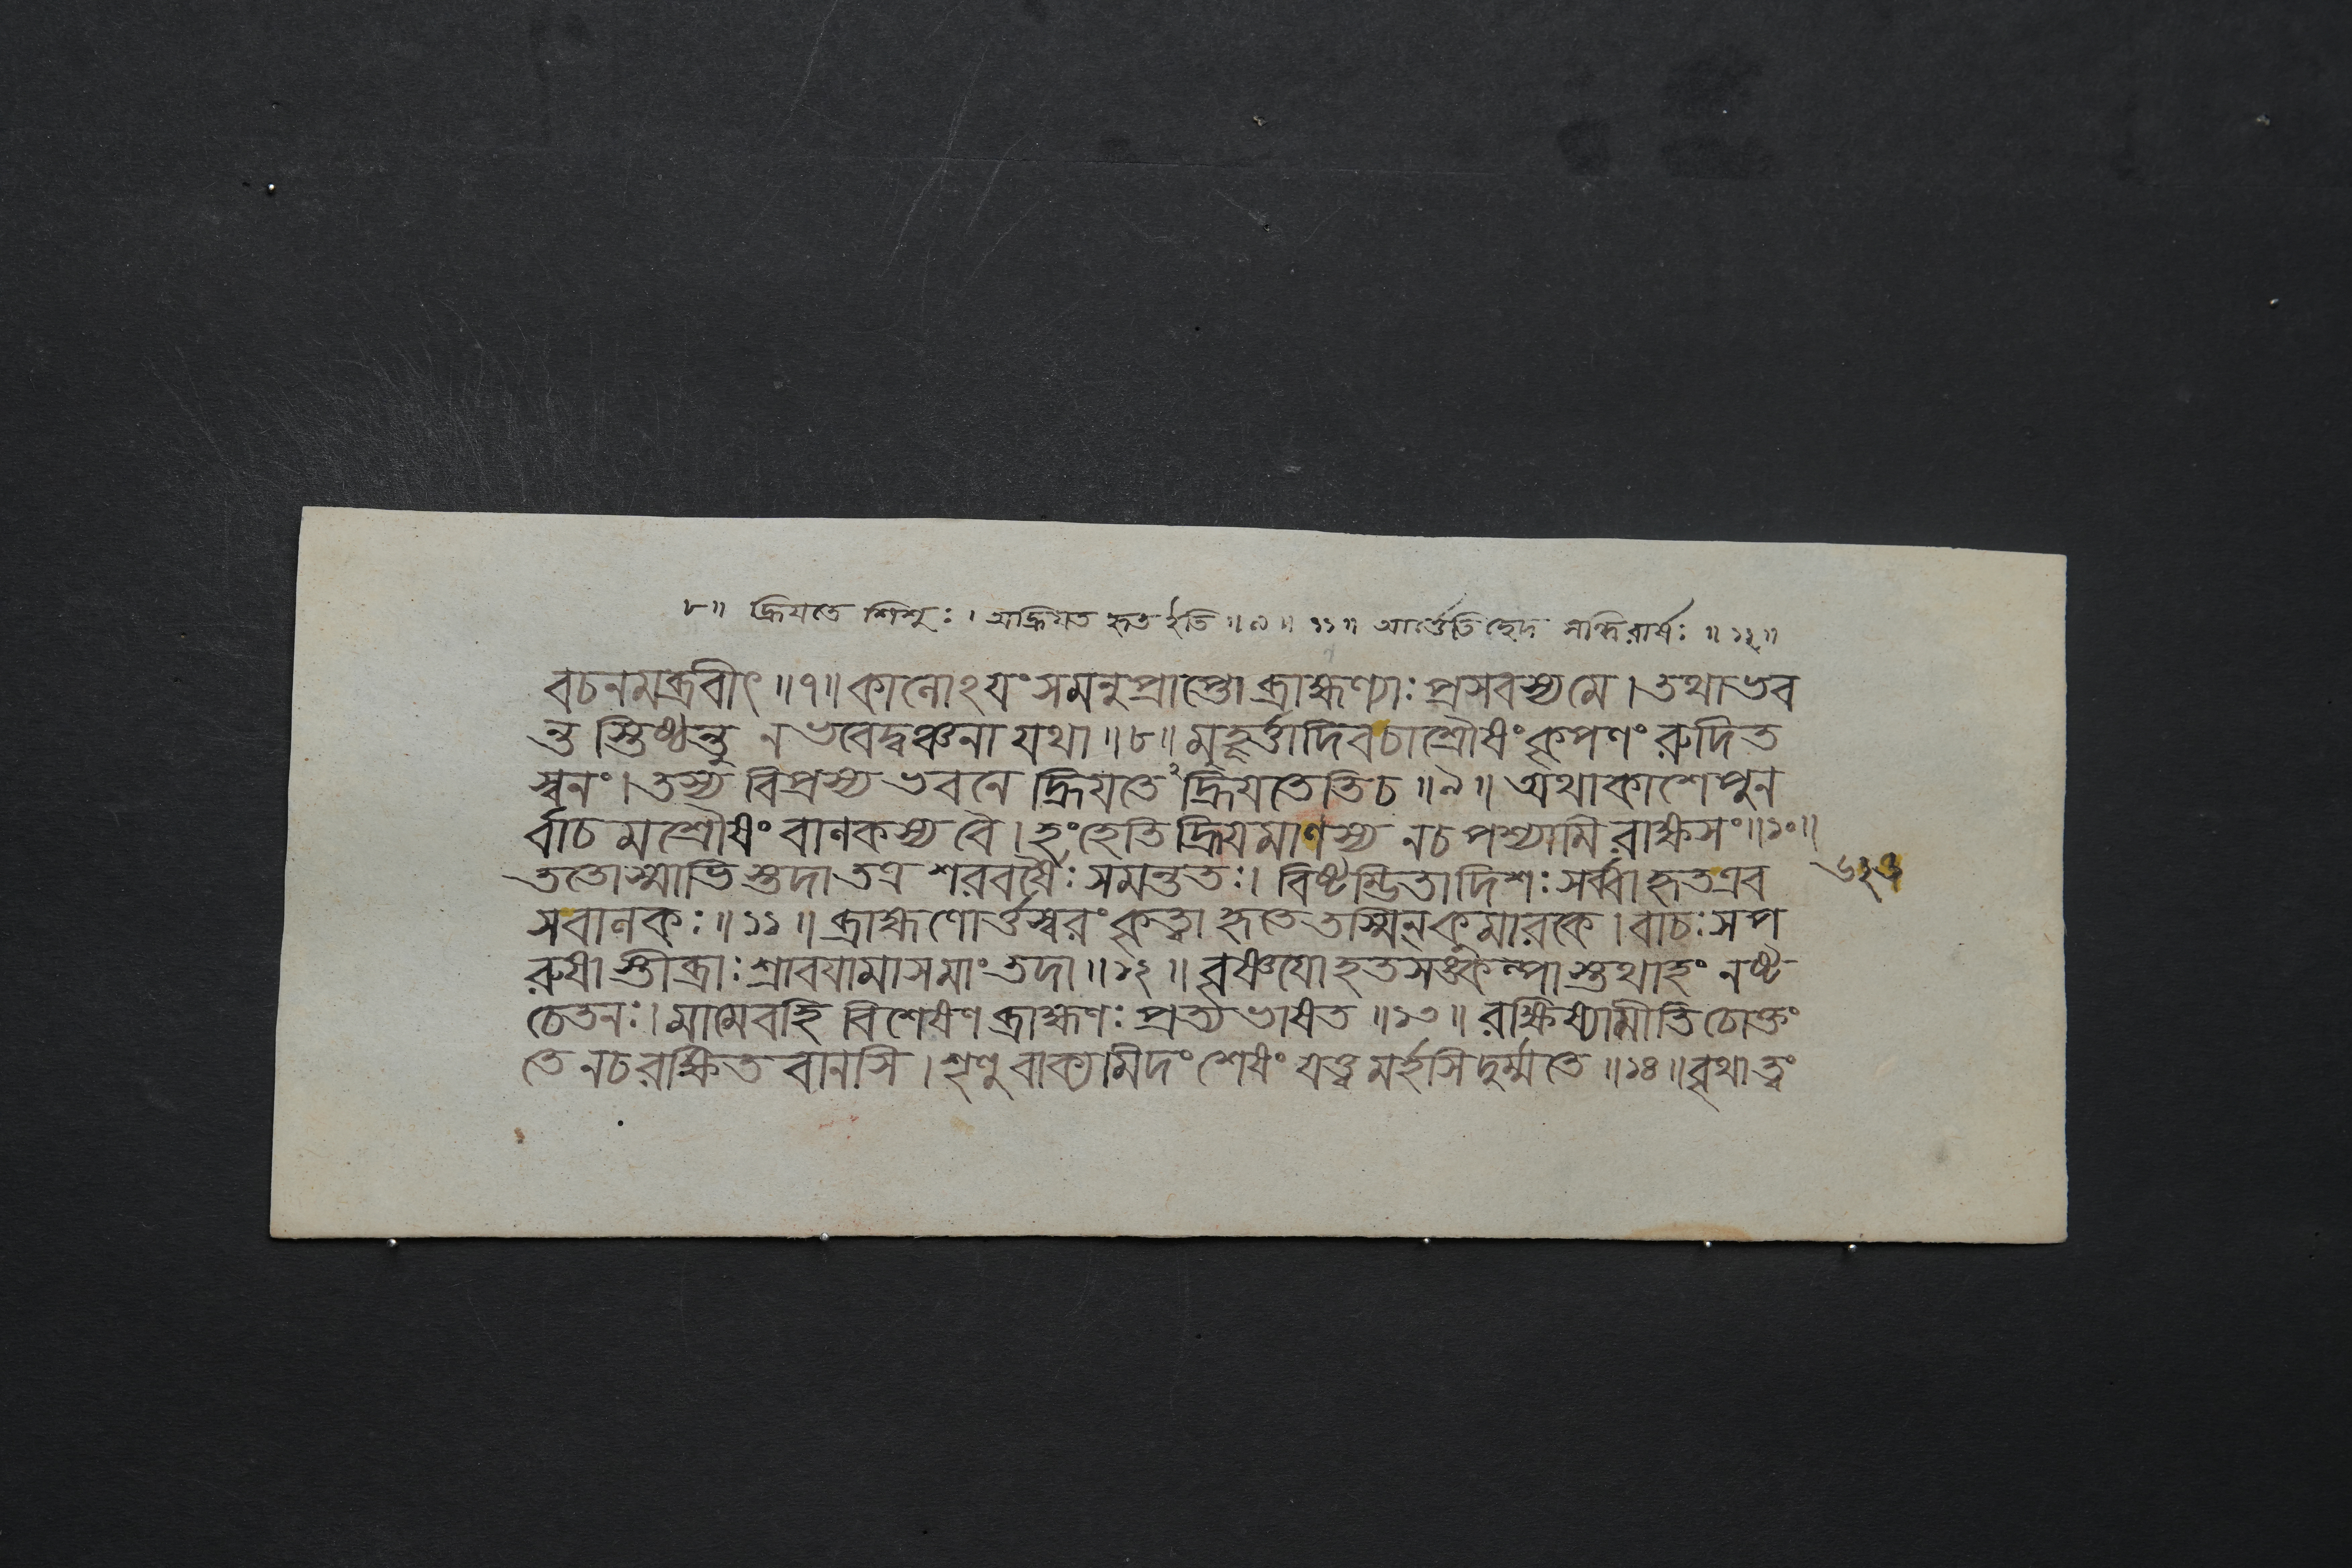 ৮॥ হ্রিযতে শিশুঃ। অহ্রিযত হৃত ইতি॥৯॥ ১১॥ আর্ত্তেতিচ্ছেদ সন্ধিরার্ষঃ॥১২॥
বচনমব্রবীৎ॥৭॥কালোঽযং সমনুপ্রাপ্তো ব্রাহ্মণ্যাঃ প্রসবস্য মে। তথা ভব
ন্ত স্তিষ্ঠন্তু ন ভবেদ্বঞ্চনা যথা॥৮॥ মুহূর্ত্তাদিবচাশ্রৌষং কৃপণং রুদিত
স্বনং। তস্য বিপ্রস্য ভবনে হ্রিযতে২ হ্রিযতেতিচ॥৯॥ অথাকাশে পুন
র্বাচ মশ্রৌষং বালকস্য বৈ। হংহেতি হ্রিযমাণস্য নচ পশ্যামি রাক্ষসং॥১০॥
ততোস্মাভি স্তদা তত্র শরবর্ষৈঃ সমন্ততঃ। বিষ্টম্ভিতাদিশঃ সর্ব্বা হৃতএব
সবালকঃ॥১১॥ ব্রাহ্মণোর্ত্তস্বরং কৃত্বা হৃতে তস্মিন্ কুমারকে। বাচঃ সপ
রুষা স্তীব্রাঃ শ্রাবযামাসমাং তদা॥১২॥ বৃষ্ণযো হতসঙ্কল্পা স্তথাহং নষ্ট
চেতনঃ। মামেবহি বিশেষেণ ব্রাহ্মণঃ প্রত্যভাষত॥১৩॥ রক্ষিষ্যামীতি চোক্তং
তে নচ রক্ষিত বানসি। শৃণু বাক্যমিদং শেষং যত্ত্ব মর্হসি দুর্ম্মতে॥১৪॥বৃথা ত্বং